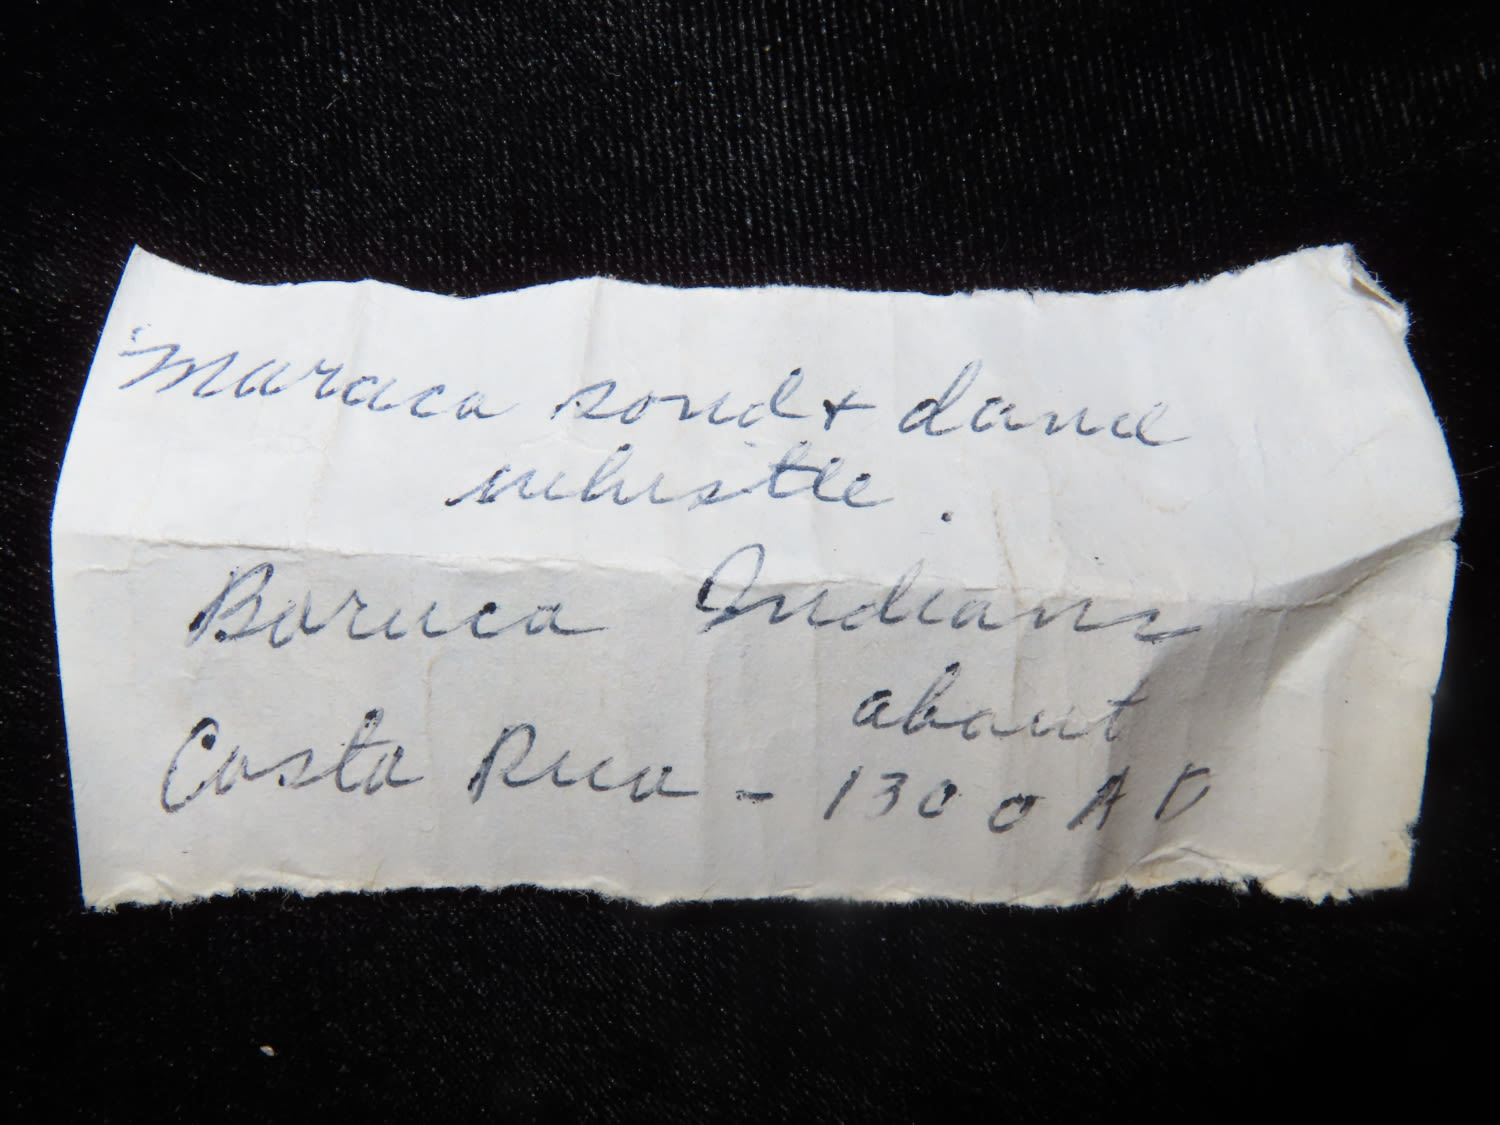 Maraca sond + dance
whistle.
Boruca Indians
about
Costa Rica - 1300 A D